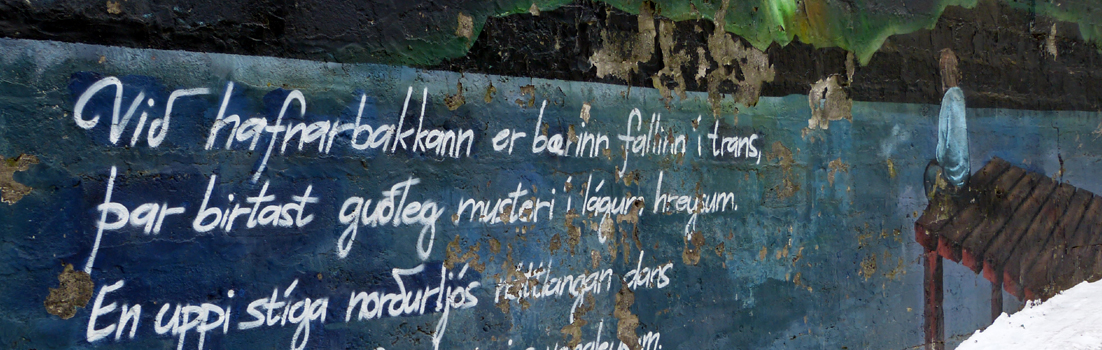 Við hafnarbakkann er bærinn fallinn í trans,
þar birtast guðleg musteri í lágum hreysum.
En uppi stíga norðurljós náttlangan dans